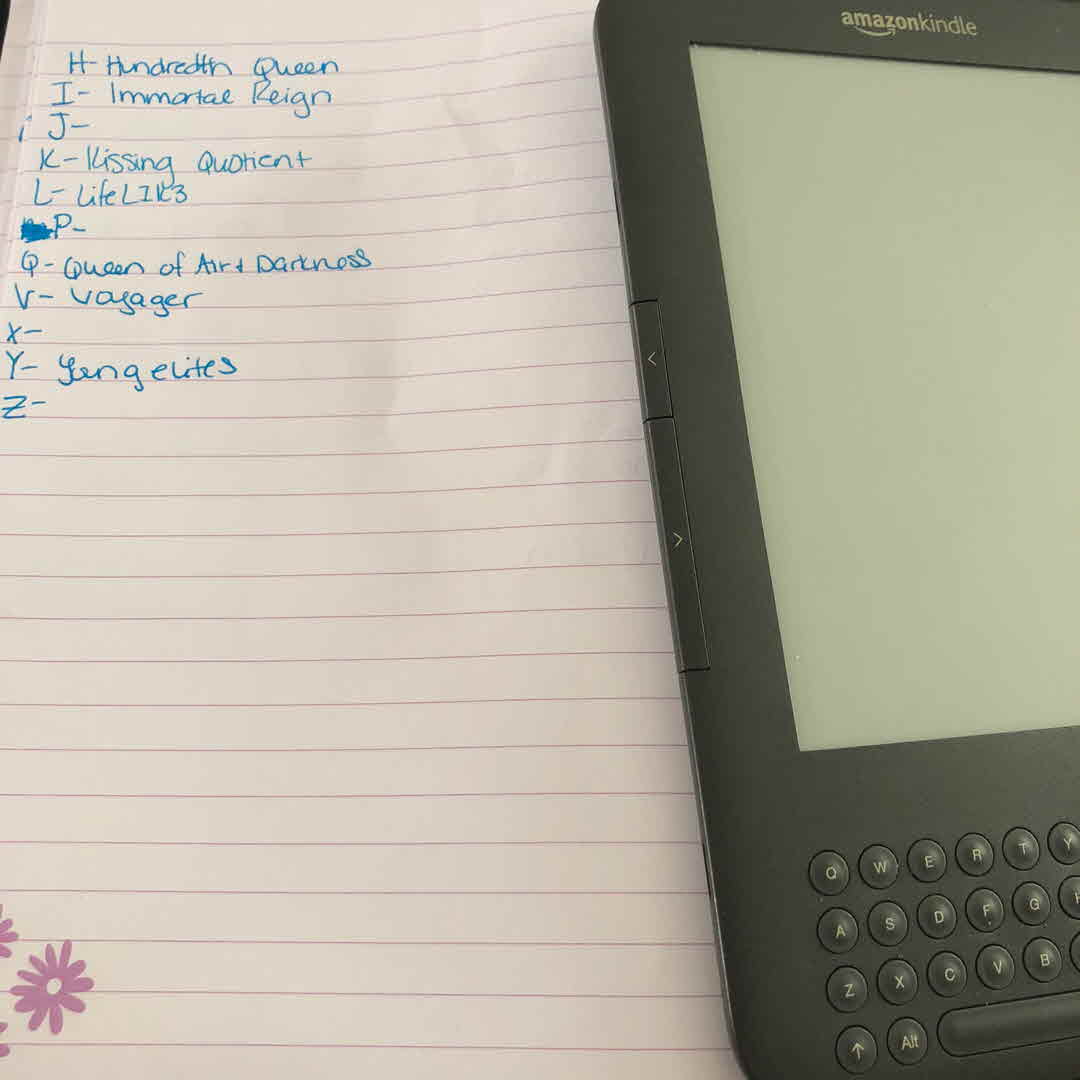 H- Hundredth Queen
I- Immortal Reign
J-
K- Kissing Quotient
L- LifeL1K3
P-
Q- Queen of Air + Darkness
V- Voyager
X-
Y- Young elites
Z-
amazonkindle
<
>
Q W E R T Y
A S D F G H
Z X C V B
↑ Alt